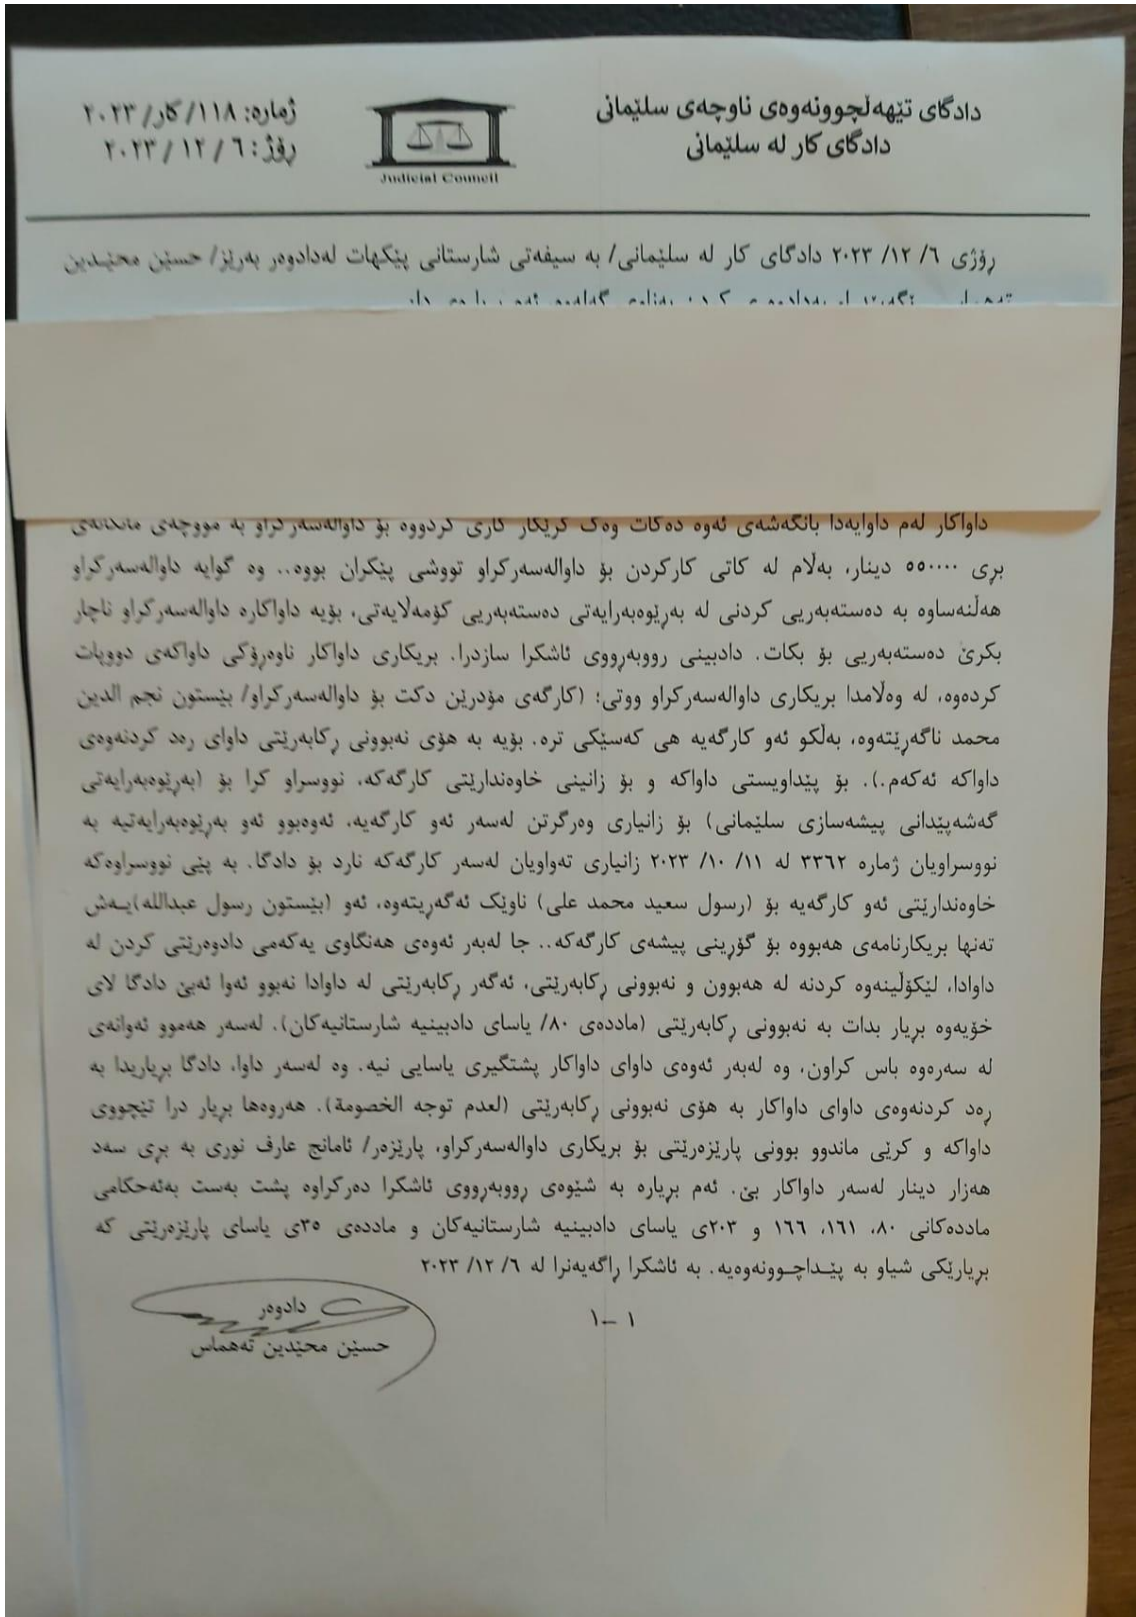 دادگای تێهەڵچوونەوەی ناوچەی سلێمانی
دادگای کار لە سلێمانی
ژمارە: ١١٨/ کار/ ٢٠٢٣
رۆژ: ٦ / ١٢ / ٢٠٢٣
Judicial Council
رۆژی ٦/ ١٢/ ٢٠٢٣ دادگای کار لە سلێمانی/ بە سیفەتی شارستانی پێکهات لەدادوەر بەرێز/ حسێن محێدین
داواکار لەم داوایەدا بانگەشەی ئەوە دەکات وەک کرێکار کاری کردووە بۆ داوالەسەرکراو بە مووچەی مانگانەی
بڕی ٥٥٠٠٠٠ دینار، بەڵام لە کاتی کارکردن بۆ داوالەسەرکراو تووشی پێکران بووە.. وە گوایە داوالەسەرکراو
هەڵنەساوە بە دەستەبەریی کردنی لە بەرێوەبەرایەتی دەستەبەریی کۆمەڵایەتی، بۆیە داواکارە داوالەسەرکراو ناچار
بکرێ دەستەبەریی بۆ بکات. دادبینی رووبەرووی ئاشکرا سازدرا. بریکاری داواکار ناوەرۆکی داواکەی دووپات
کردەوە، لە وەڵامدا بریکاری داوالەسەرکراو ووتی؛ (کارگەی مۆدرێن دکت بۆ داوالەسەرکراو/ بێستون نجم الدین
محمد ناگەڕێتەوە، بەڵکو ئەو کارگەیە هی کەسێکی ترە. بۆیە بە هۆی نەبوونی ڕکابەرێتی داوای رەد کردنەوەی
داواکە ئەکەم.). بۆ پێداویستی داواکە و بۆ زانینی خاوەندارێتی کارگەکە، نووسراو کرا بۆ (بەڕێوەبەرایەتی
گەشەپێدانی پیشەسازی سلێمانی) بۆ زانیاری وەرگرتن لەسەر ئەو کارگەیە، ئەوەبوو ئەو بەڕێوەبەرایەتیە بە
نووسراویان ژمارە ٣٣٦٢ لە ١١/ ١٠/ ٢٠٢٣ زانیاری تەواویان لەسەر کارگەکە نارد بۆ دادگا. بە پێی نووسراوەکە
خاوەندارێتی ئەو کارگەیە بۆ (رسول سعید محمد علی) ناوێک ئەگەریتەوە، ئەو (بێستون رسول عبدالله)یـەش
تەنها بریکارنامەی هەبووە بۆ گۆڕینی پیشەی کارگەکە.. جا لەبەر ئەوەی هەنگاوی یەکەمی دادوەرێتی کردن لە
داوادا، لێکۆڵینەوە کردنە لە هەبوون و نەبوونی ڕکابەرێتی، ئەگەر ڕکابەرێتی لە داوادا نەبوو ئەوا ئەبێ دادگا لای
خۆیەوە بڕیار بدات بە نەبوونی ڕکابەرێتی (ماددەی ٨٠/ یاسای دادبینیە شارستانیەکان). لەسەر هەموو ئەوانەی
لە سەرەوە باس کراون، وە لەبەر ئەوەی داوای داواکار پشتگیری یاسایی نیە. وە لەسەر داوا، دادگا بڕیاریدا بە
ڕەد کردنەوەی داوای داواکار بە هۆی نەبوونی ڕکابەرێتی (لعدم توجه الخصومة). هەروەها بڕیار درا تێچووی
داواکە و کرێی ماندوو بوونی پارێزەرێتی بۆ بریکاری داوالەسەرکراو، پارێزەر/ ئامانج عارف نوری بە بڕی سەد
هەزار دینار لەسەر داواکار بێ. ئەم بڕیارە بە شێوەی ڕووبەرووی ئاشکرا دەرکراوە پشت بەست بەئەحکامی
ماددەکانی ٨٠، ١٦١، ١٦٦ و ٢٠٣ی یاسای دادبینیە شارستانیەکان و ماددەی ٣٥ی یاسای پارێزەرێتی کە
بڕیارێکی شیاو بە پێـداچـوونەوەیە. بە ئاشکرا ڕاگەیەنرا لە ٦/ ١٢/ ٢٠٢٣
١ –١
دادوەر
حسێن محێدین تەهماس